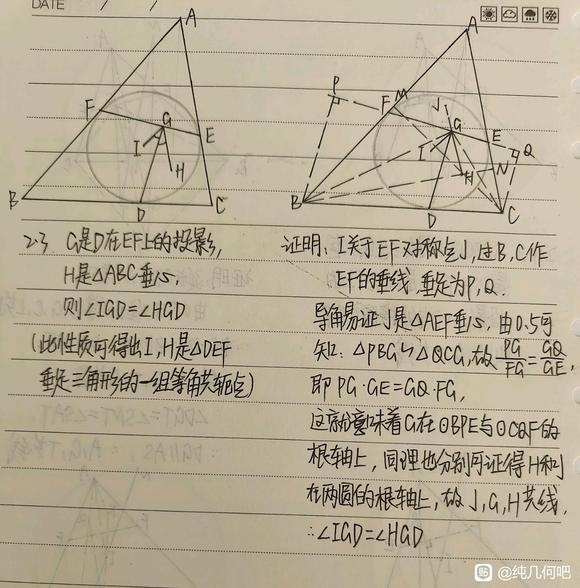 DATE / /
A
F
G
E
I
H
B
D
C
A
P
F
M
J
G
E
Q
I
H
N
B
D
C
2.3 G是D在EF上的投影,
H是△ABC垂心,
则∠IGD=∠HGD
(此性质可得出I,H是△DEF
垂足三角形的一组等角共轭点)
证明: I关于EF对称点J,过B,C作
EF的垂线,垂足为P,Q.
导角易证J是△AEF垂心,由0.5可
知:△PBG∽△QCG,故PG/FG=GQ/GE,
即PG·GE=GQ·FG,
这就意味着G在⊙BPE与⊙CQF的
根轴上,同理也分别可证得H和J
在两圆的根轴上,故J,G,H共线,
∴∠IGD=∠HGD
贴 @纯几何吧